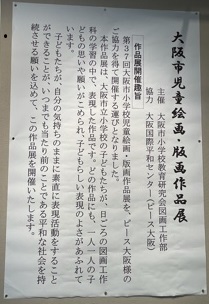 大阪市児童絵画・版画作品展
主催　大阪市小学校教育研究会図画工作部
協力　大阪国際平和センター(ピースおおさか)
作品展開催趣旨
第37回大阪市小学校児童絵画・版画作品展を、ピース大阪様の
ご協力を得て開催する運びとなりました。
本作品展は、大阪市立小学校の子どもたちが、日ごろの図画工作
科の学習の中で、表現した作品です。どの作品にも、一人一人の子
どもの思いや願いがこめられ、子どもらしい表現のよさがあふれて
います。
子どもたちが、自分の気持ちのままに素直に表現活動をすること
ができることが、いつまでも当たり前のことである平和な社会を持
続させる願いを込めて、この作品展を開催いたします。